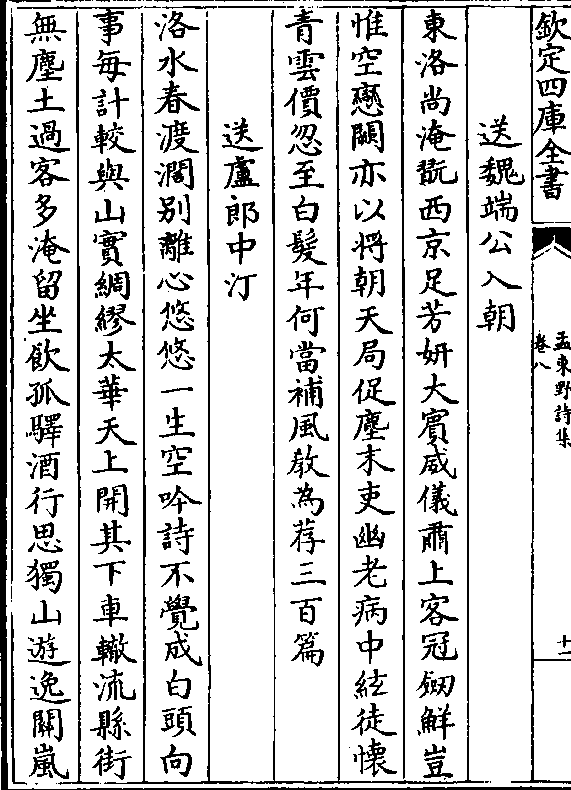 欽定四庫全書
孟東野詩集
卷八
十一
送魏端公入朝
東洛尚淹翫西京足芳妍大賓威儀肅上客冠劒鮮豈
惟空戀闕亦以將朝天局促塵末吏幽老病中絃徒懐
青雲價忽至白髮年何當補風教為荐三百篇
送盧郎中汀
洛水春渡濶别離心悠悠一生空吟詩不覺成白頭向
事每計較與山實綢繆太華天上開其下車轍流縣街
無塵土過客多淹留坐飲孤驛酒行思獨山遊逸關嵐